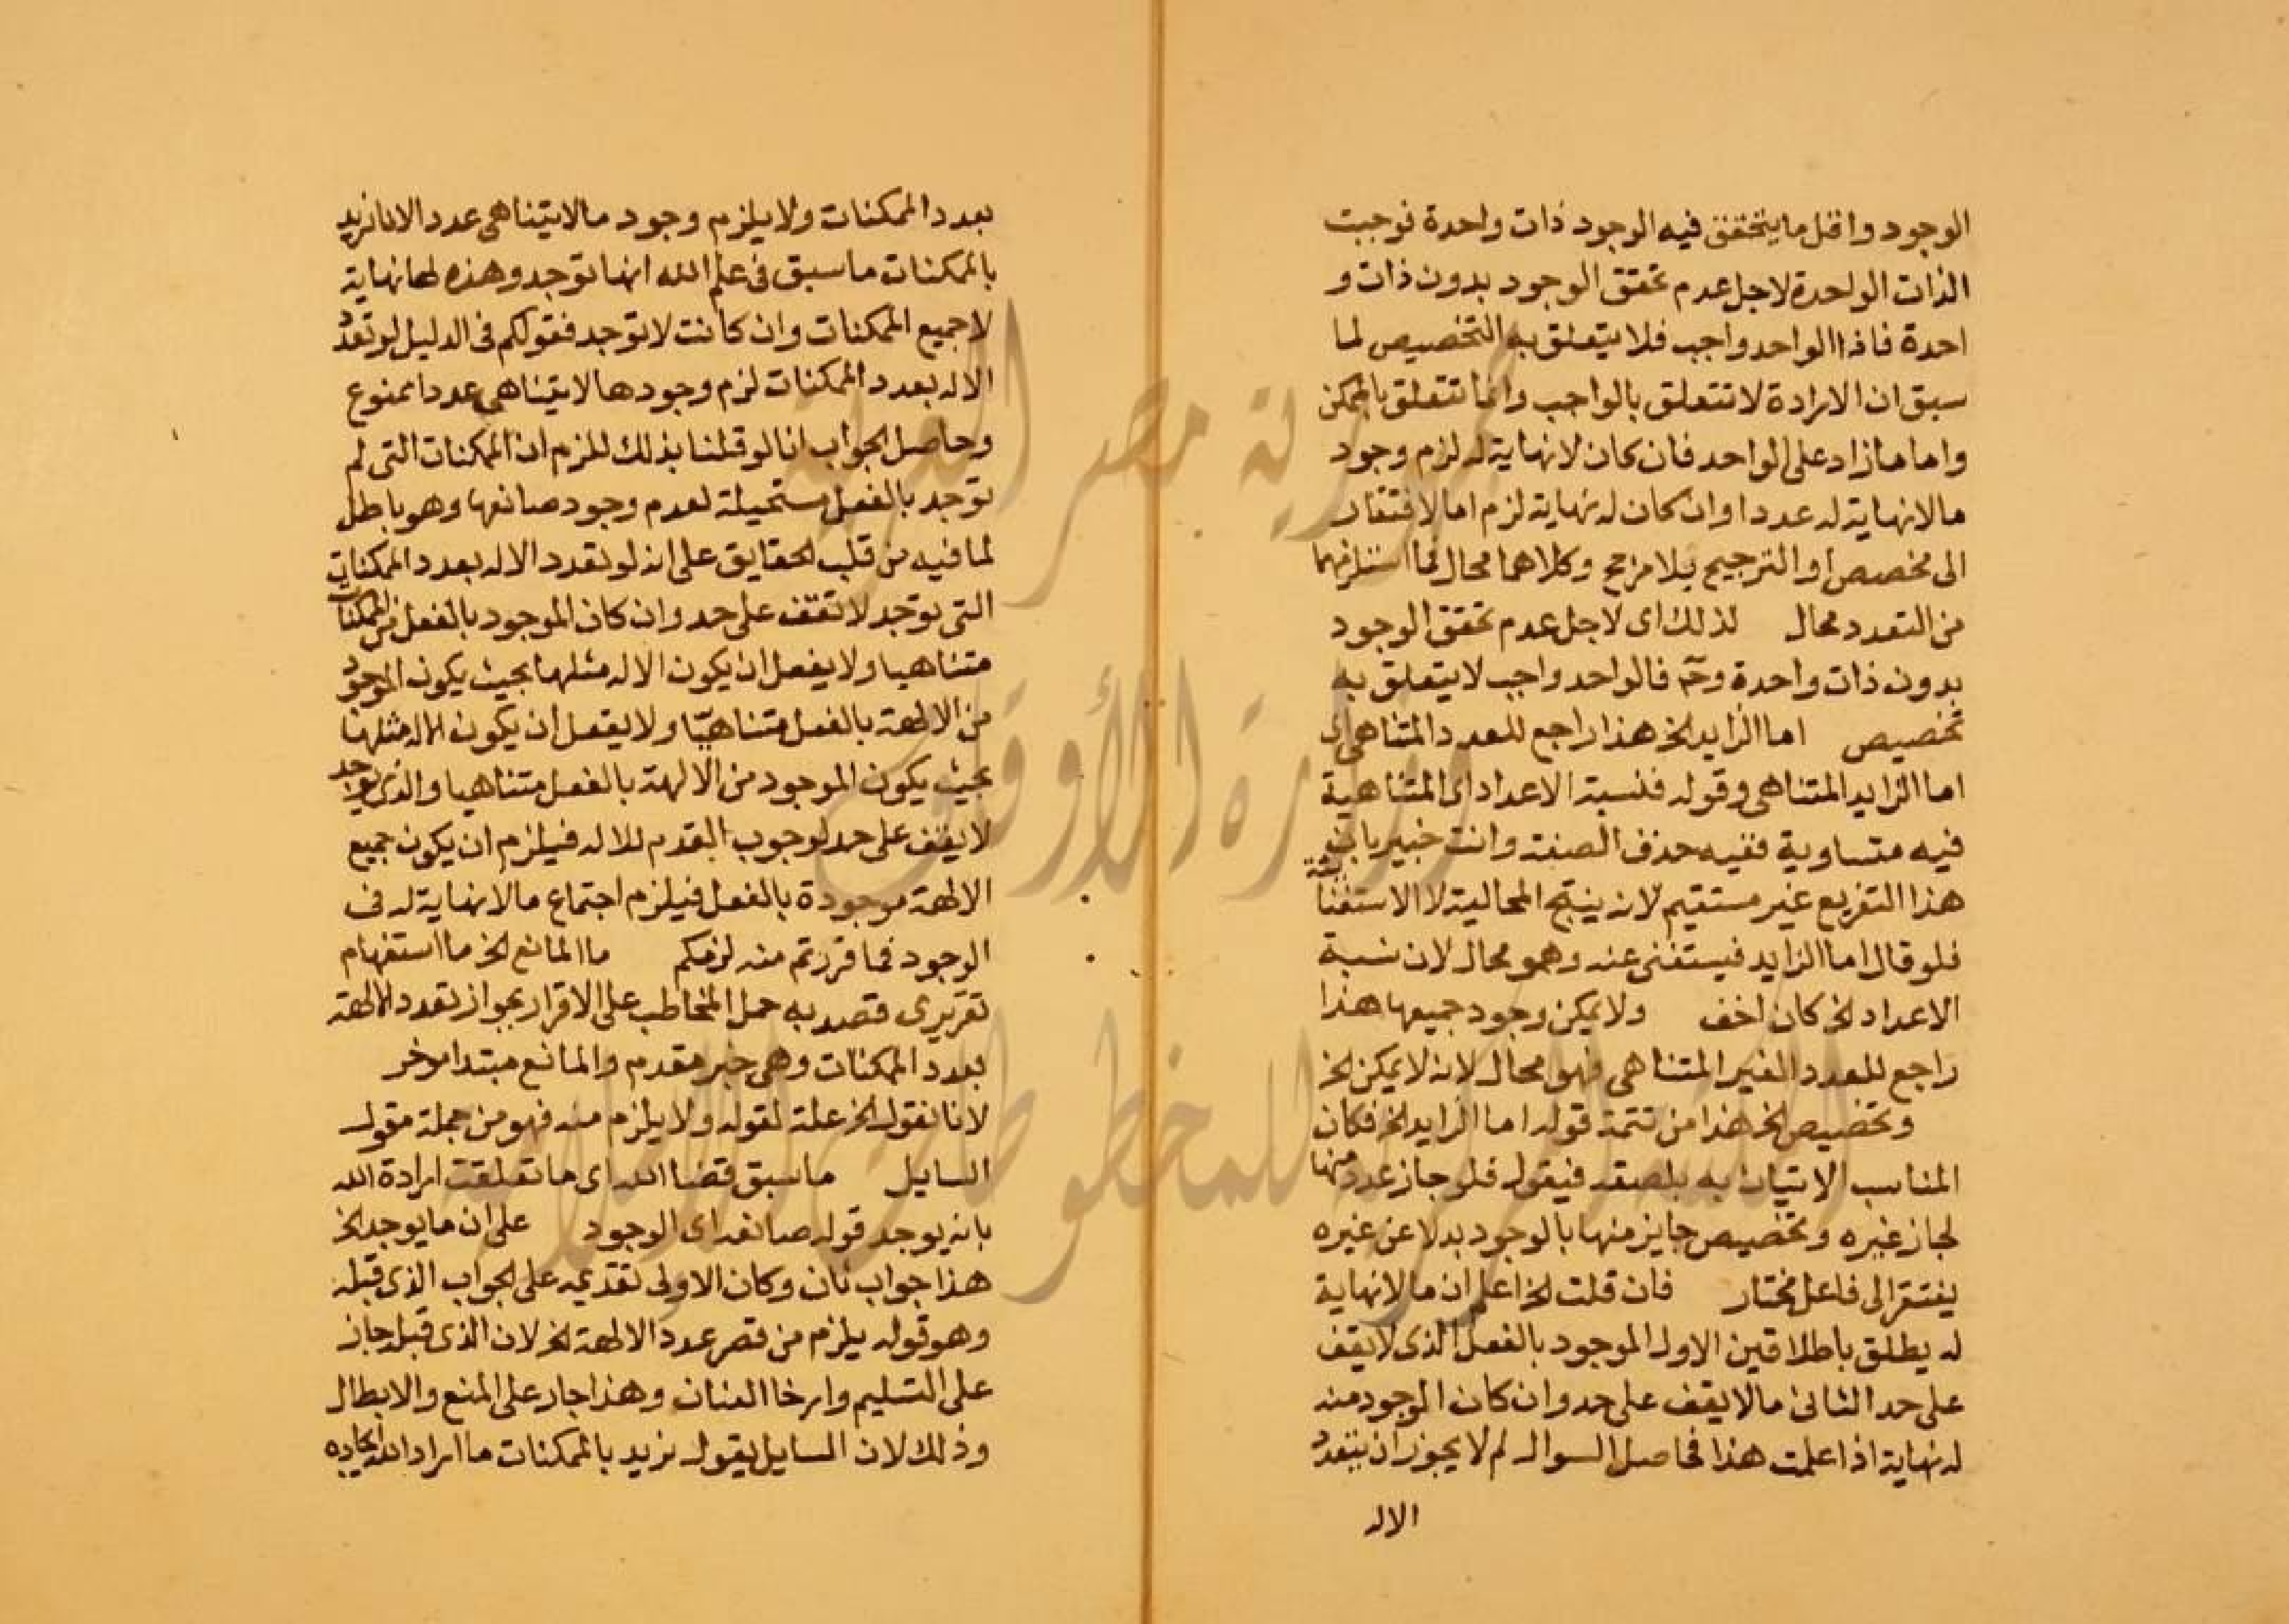 الوجود واقل ما يتحقق فيه الوجود ذات واحدة فوجبت
الذات الواحدة لاجل عدم تحقق الوجود بدون ذات و
احدة فاذا الواحد واجب فلا يتعلق به التخصيص لما
سبق ان الارادة لا تتعلق بالواجب وانما تتعلق بالممكن
واما ما زاد على الواحد فان كان لا نهاية له لزم وجود
ما لا نهاية له عددا وان كان له نهاية لزم اما الافتقار
الى مخصص او الترجيح بلا مرجح وكلاهما محال فما استلزمهما
من التعدد محال لذلك اى لاجل عدم تحقق الوجود
بدون ذات واحدة وحٓ فالواحد واجب لا يتعلق به
تخصيص اما الزايد الخ هذا راجع للعدد المتناهى اى
اما الزايد المتناهى وقوله فنسبة الاعداد اى المتناهية
فيه متساوية ففيه حذف الصفة وانت خبير بان
هذا التفريع غير مستقيم لانه ينتج المحالية لا الاستغنا
فلو قال اما الزايد فيستغنى عنه وهو محال لان نسبة
الاعداد الخ كان اخف ولا يمكن وجود جميعها هذا
راجع للعدد الغير المتناهى فهو محال لانه لا يمكن الخ
وتخصيص الخ هذا من تتمة قوله اما الزايد الخ فكان
المناسب الاتيان به بلصقه فيقول فلو جاز عدد منها
لجاز غيره وتخصيص جايز منها بالوجود بدلا عن غيره
يفتقر الى فاعل مختار فان قلت الخ اعلم ان ما لا نهاية
له يطلق باطلاقين الاول الموجود بالفعل الذى لا يقف
على حد الثانى ما لا يقف على حد وان كان الموجود منه
له نهاية اذا علمت هذا فحاصل السوال لم لا يجوز ان يتعدد
الاله
بعدد الممكنات ولا يلزم وجود ما لا يتناهى عددا لانا نريد
بالممكنات ما سبق فى علم الله انها توجد وهذه لها نهاية
لا جميع الممكنات وان كانت لا توجد فقولكم فى الدليل لو تعدد
الاله بعدد الممكنات لزم وجود ما لا يتناهى عددا ممنوع
وحاصل الجواب انا لو قلنا بذلك للزم ان الممكنات التى لم
توجد بالفعل مستحيلة لعدم وجود صانعها وهو باطل
لما فيه من قلب الحقايق على انه لو تعدد الاله بعدد الممكنات
التى توجد لا تقف على حد وان كان الموجود بالفعل من الممكنات
متناهيا ولا يعقل ان يكون الاله مثلها بحيث يكون الموجود
من الالهة بالفعل متناهيا ولا يعقل ان يكون الاله مثلها
بحيث يكون الموجود من الالهة بالفعل متناهيا والذى يوجد
لا يقف على حد لوجوب القدم للاله فيلزم ان يكون جميع
الالهة موجودة بالفعل فيلزم اجتماع ما لا نهاية له فى
الوجود فما فررتم منه لزمكم ما المانع الخ ما استفهام
تقريرى قصد به حمل المخاطب على الاقرار بجواز تعدد الالهة
بعدد الممكنات وهى خبر مقدم والمانع مبتدا موخر
لانا نقول الخ علة لقوله ولا يلزم منه فهو من جملة مقول
السايل ما سبق قضا الله اى ما تعلقت ارادة الله
بانه يوجد قوله صانعه اى الوجود على ان ما يوجد الخ
هذا جواب ثان وكان الاولى تقديمه على الجواب الذى قبله
وهو قوله يلزم من قصر عدد الالهة الخ لان الذى قبله جاز
على التسليم وارخا العنان وهذا جار على المنع والابطال
وذلك لان السايل يقول نريد بالممكنات ما اراد الله ايجاده